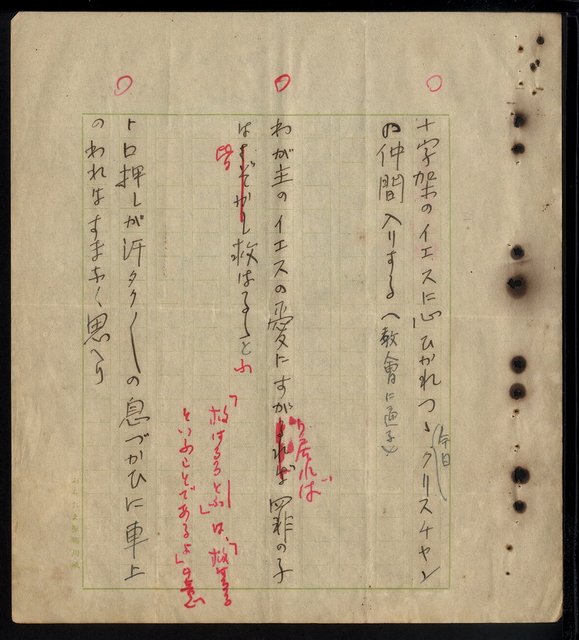 十字架のイエスに心ひかれつゝ今日クリスチヤン
の仲間入りする(教會に通ふ)
わが主のイエスの愛にすがり居れば罪の子
は皆救はるゝとふ
「救はるゝとふ」は、「救はるる
といふことであるよ」の意
トロ押しが汗タク〳〵の息づかひに車上
のわれはすまなく思へり